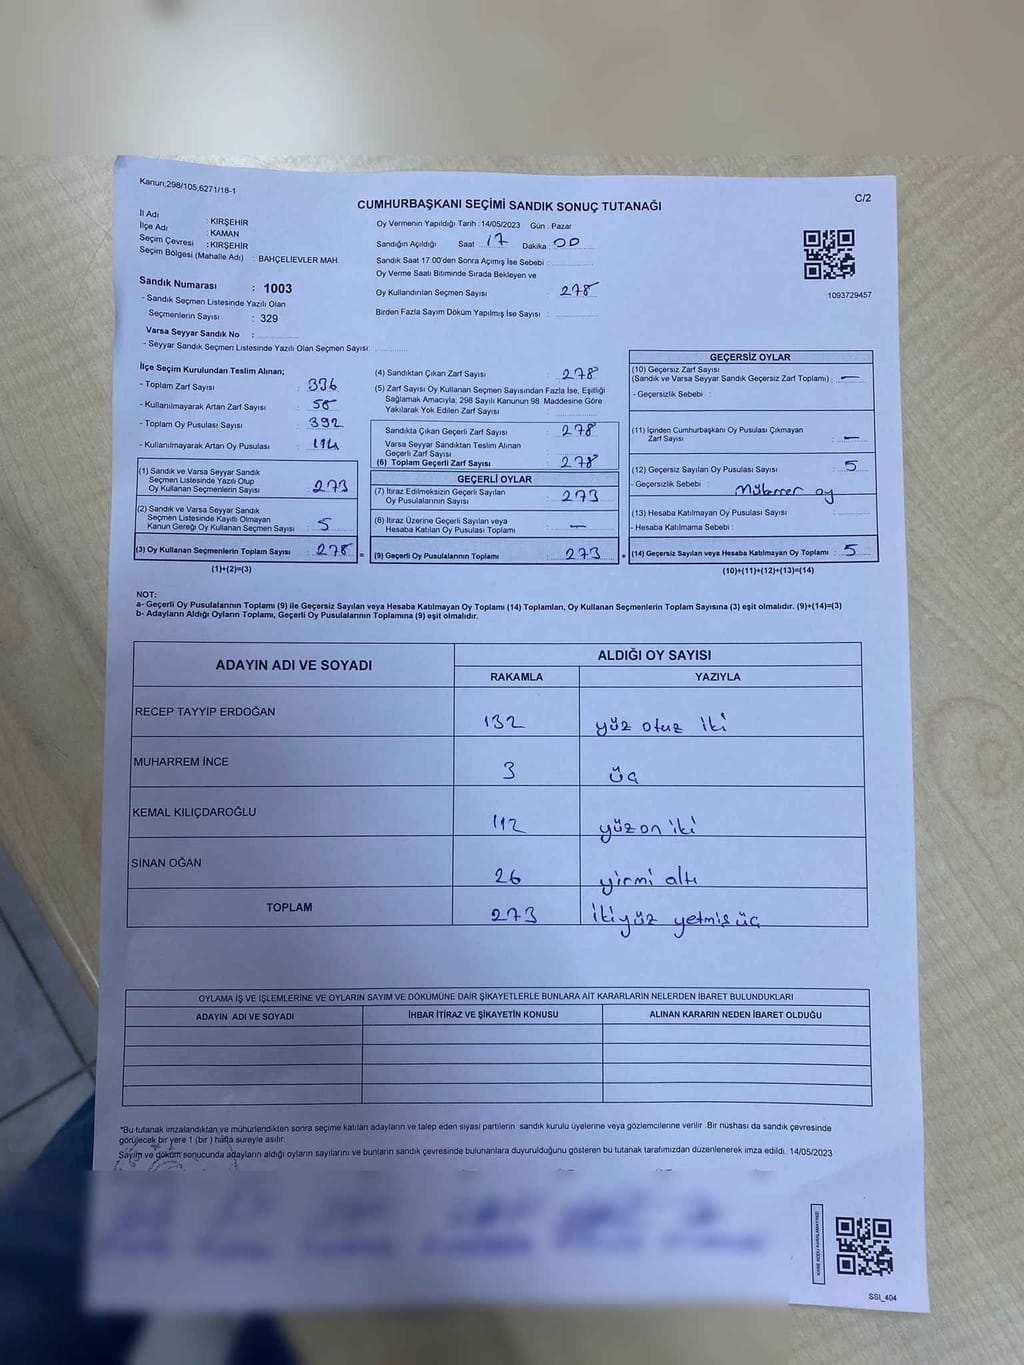 Kanun;298/105,6271/18-1
C/2
CUMHURBAŞKANI SEÇİMİ SANDIK SONUÇ TUTANAĞI
İl Adı : KIRŞEHİR
İlçe Adı : KAMAN
Seçim Çevresi : KIRŞEHİR
Seçim Bölgesi (Mahalle Adı) : BAHÇELİEVLER MAH.
Sandık Numarası : 1003
- Sandık Seçmen Listesinde Yazılı Olan
Seçmenlerin Sayısı : 329
Varsa Seyyar Sandık No :
- Seyyar Sandık Seçmen Listesinde Yazılı Olan Seçmen Sayısı:
Oy Vermenin Yapıldığı Tarih : 14/05/2023 Gün : Pazar
Sandığın Açıldığı Saat : 17 Dakika : 00
Sandık Saat 17:00'den Sonra Açımış İse Sebebi :
Oy Verme Saati Bitiminde Sırada Bekleyen ve
Oy Kullandırılan Seçmen Sayısı : 278
Birden Fazla Sayım Döküm Yapılmış İse Sayısı :
1093729457
İlçe Seçim Kurulundan Teslim Alınan;
- Toplam Zarf Sayısı : 336
- Kullanılmayarak Artan Zarf Sayısı : 58
- Toplam Oy Pusulası Sayısı : 392
- Kullanılmayarak Artan Oy Pusulası : 114
(1) Sandık ve Varsa Seyyar Sandık
Seçmen Listesinde Yazılı Olup
Oy Kullanan Seçmenlerin Sayısı : 273
(2) Sandık ve Varsa Seyyar Sandık
Seçmen Listesinde Kayıtlı Olmayan
Kanun Gereği Oy Kullanan Seçmen Sayısı : 5
(3) Oy Kullanan Seçmenlerin Toplam Sayısı : 278
(1)+(2)=(3)
(4) Sandıktan Çıkan Zarf Sayısı : 278
(5) Zarf Sayısı Oy Kullanan Seçmen Sayısından Fazla İse, Eşitliği
Sağlamak Amacıyla; 298 Sayılı Kanunun 98. Maddesine Göre
Yakılarak Yok Edilen Zarf Sayısı :
Sandıkta Çıkan Geçerli Zarf Sayısı : 278
Varsa Seyyar Sandıktan Teslim Alınan
Geçerli Zarf Sayısı :
(6) Toplam Geçerli Zarf Sayısı : 278
GEÇERLİ OYLAR
(7) İtiraz Edilmeksizin Geçerli Sayılan
Oy Pusulalarının Sayısı : 273
(8) İtiraz Üzerine Geçerli Sayılan veya
Hesaba Katılan Oy Pusulası Toplamı : —
= (9) Geçerli Oy Pusulalarının Toplamı : 273 +
GEÇERSİZ OYLAR
(10) Geçersiz Zarf Sayısı
(Sandık ve Varsa Seyyar Sandık Geçersiz Zarf Toplamı) : —
- Geçersizlik Sebebi :
(11) İçinden Cumhurbaşkanı Oy Pusulası Çıkmayan
Zarf Sayısı : —
(12) Geçersiz Sayılan Oy Pusulası Sayısı : 5
- Geçersizlik Sebebi : Mükerrer oy
(13) Hesaba Katılmayan Oy Pusulası Sayısı :
- Hesaba Katılmama Sebebi :
(14) Geçersiz Sayılan veya Hesaba Katılmayan Oy Toplamı : 5
(10)+(11)+(12)+(13)=(14)
NOT:
a- Geçerli Oy Pusulalarının Toplamı (9) ile Geçersiz Sayılan veya Hesaba Katılmayan Oy Toplamı (14) Toplamları, Oy Kullanan Seçmenlerin Toplam Sayısına (3) eşit olmalıdır. (9)+(14)=(3)
b- Adayların Aldığı Oyların Toplamı, Geçerli Oy Pusulalarının Toplamına (9) eşit olmalıdır.
ADAYIN ADI VE SOYADI ALDIĞI OY SAYISI
RAKAMLA YAZIYLA
RECEP TAYYİP ERDOĞAN 132 yüz otuz iki
MUHARREM İNCE 3 üç
KEMAL KILIÇDAROĞLU 112 yüz on iki
SİNAN OĞAN 26 yirmi altı
TOPLAM 273 ikiyüz yetmiş üç
OYLAMA İŞ VE İŞLEMLERİNE VE OYLARIN SAYIM VE DÖKÜMÜNE DAİR ŞİKAYETLERLE BUNLARA AİT KARARLARIN NELERDEN İBARET BULUNDUKLARI
ADAYIN ADI VE SOYADI İHBAR İTİRAZ VE ŞİKAYETİN KONUSU ALINAN KARARIN NEDEN İBARET OLDUĞU
*Bu tutanak imzalandıktan ve mühürlendikten sonra seçime katılan adayların ve talep eden siyasi partilerin sandık kurulu üyelerine veya gözlemcilerine verilir .Bir nüshası da sandık çevresinde
görülecek bir yere 1 (bir ) hafta süreyle asılır.
Sayım ve döküm sonucunda adayların aldığı oyların sayılarını ve bunların sandık çevresinde bulunanlara duyurulduğunu gösteren bu tutanak tarafımızdan düzenlenerek imza edildi. 14/05/2023
SSI_404